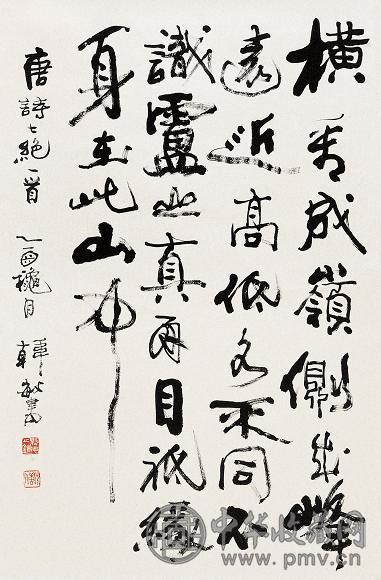 橫看成嶺側成峰
遠近高低各不同不
識盧山真面目祇緣
身在此山中
唐詩七絕一首 乙酉穐月 韓敏書
中华收藏网
www.pmv.cn